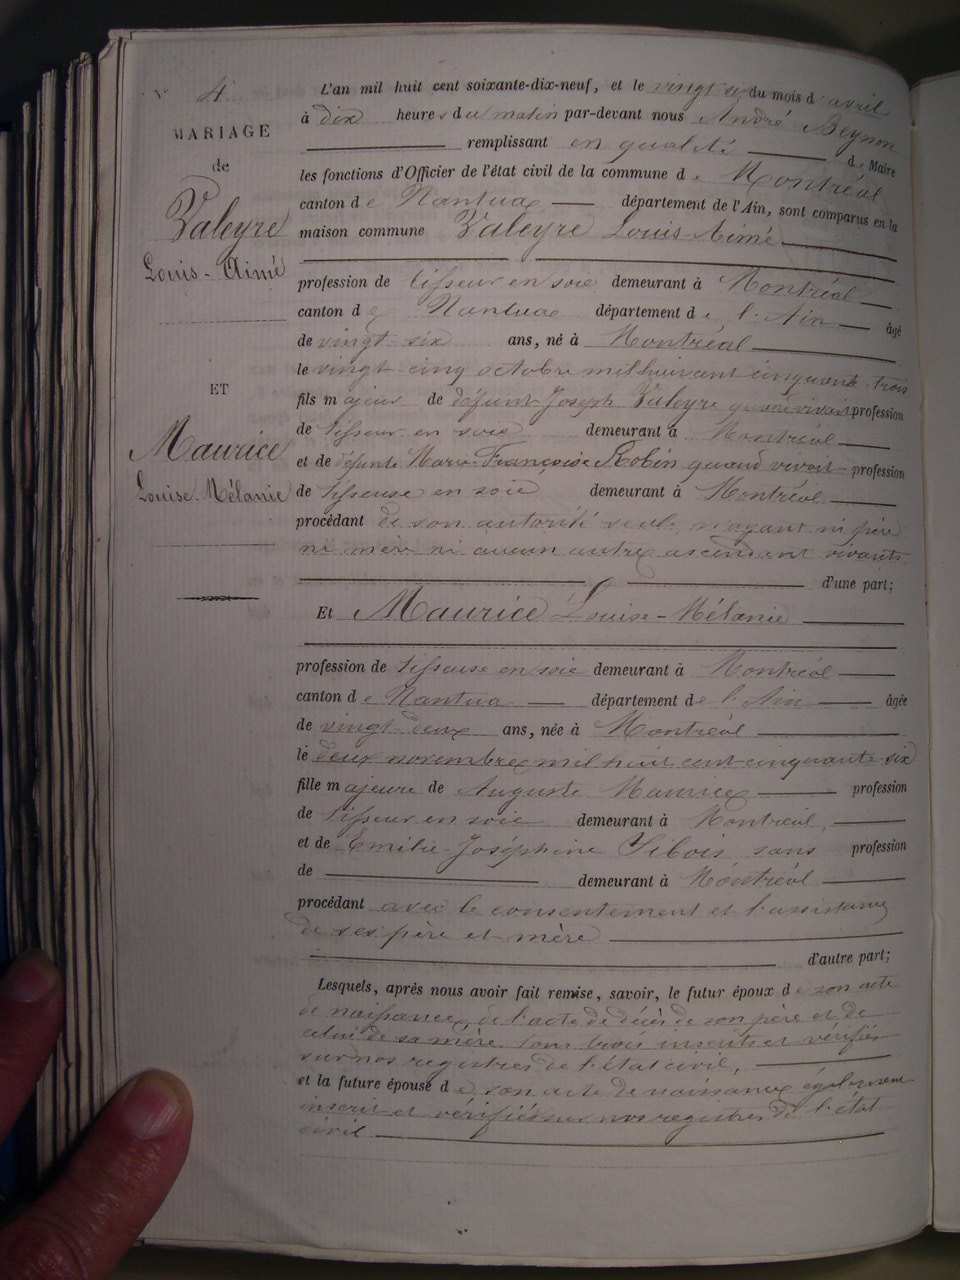 N° 4
MARIAGE
de
Valeyre
Louis-Aimé
ET
Maurice
Louise-Mélanie
L'an mil huit cent soixante-dix-neuf, et le vingt six du mois d'avril
à dix heures du matin par-devant nous André Beynon
remplissant en qualité de Maire
les fonctions d'Officier de l'état civil de la commune de Montréal
canton de Nantua département de l'Ain, sont comparus en la
maison commune Valeyre Louis-Aimé
profession de tisseur en soie demeurant à Montréal
canton de Nantua département de l'Ain âgé
de vingt six ans, né à Montréal
le vingt cinq octobre mil huit cent cinquante trois
fils majeur de défunt Joseph Valeyre quand vivait profession
de tisseur en soie demeurant à Montréal
et de défunte Marie-Françoise Robin quand vivait profession
de tisseuse en soie demeurant à Montréal
procédant de son autorité seule n'ayant ni père
ni mère ni aucun autre ascendant vivants
d'une part;
Et Maurice Louise-Mélanie
profession de tisseuse en soie demeurant à Montréal
canton de Nantua département de l'Ain âgée
de vingt deux ans, née à Montréal
le deux novembre mil huit cent cinquante six
fille majeure de Auguste Maurice profession
de tisseur en soie demeurant à Montréal
et de Emilie-Joséphine Sibois sans profession
de demeurant à Montréal
procédant avec le consentement et l'assistance
de ses père et mère
d'autre part;
Lesquels, après nous avoir fait remise, savoir, le futur époux de son acte
de naissance, de l'acte de décès de son père et de
celui de sa mère tous trois inscrits et vérifiés
sur nos registres de l'état civil,
et la future épouse de son acte de naissance également
inscrit et vérifié sur nos registres de l'état
civil